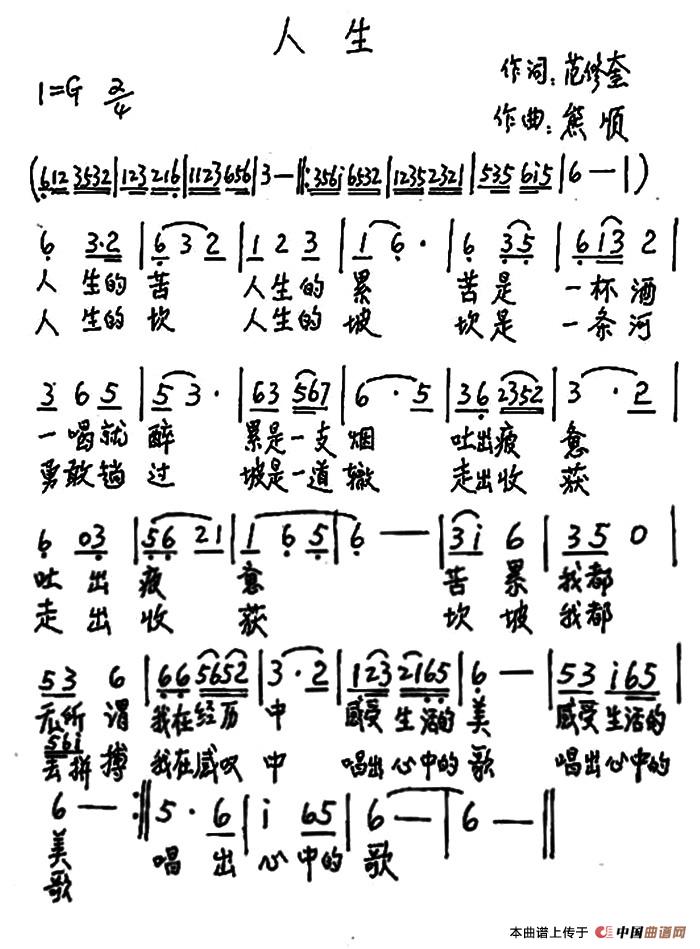 人生
作词:范修奎
1=G 2/4
作曲:熊顺
(612 3532|123 216|1123 656|3 —‖:356i 6532|1235 2321|535 6i5|6 —|)
6 3·2|6 3 2|1 2 3|1 6·|6 35|613 2|
人生的苦 人生的累 苦是一杯酒
人生的坎 人生的坡 坎是一条河
3 6 5|5 3·|63 567|6·5|36 2352|3·2|
一喝就醉 累是一支烟 吐出疲惫
勇敢镐过 坡是一道辙 走出收获
6 03|56 21|1 6 5|6 —|3i 6|35 0|
吐出疲惫 苦累我都
走出收获 坎坡我都
53 6|66 5652|3·2|123 2165|6 —|53 i65|
无所谓 我在经历中 感受生活的美 感受生活的
56i
去拼搏 我在感叹中 唱出心中的歌 唱出心中的
6 —:‖5·6|i 65|6 —|6 —‖
美 唱出心中的歌
歌
本曲谱上传于 中国曲谱网